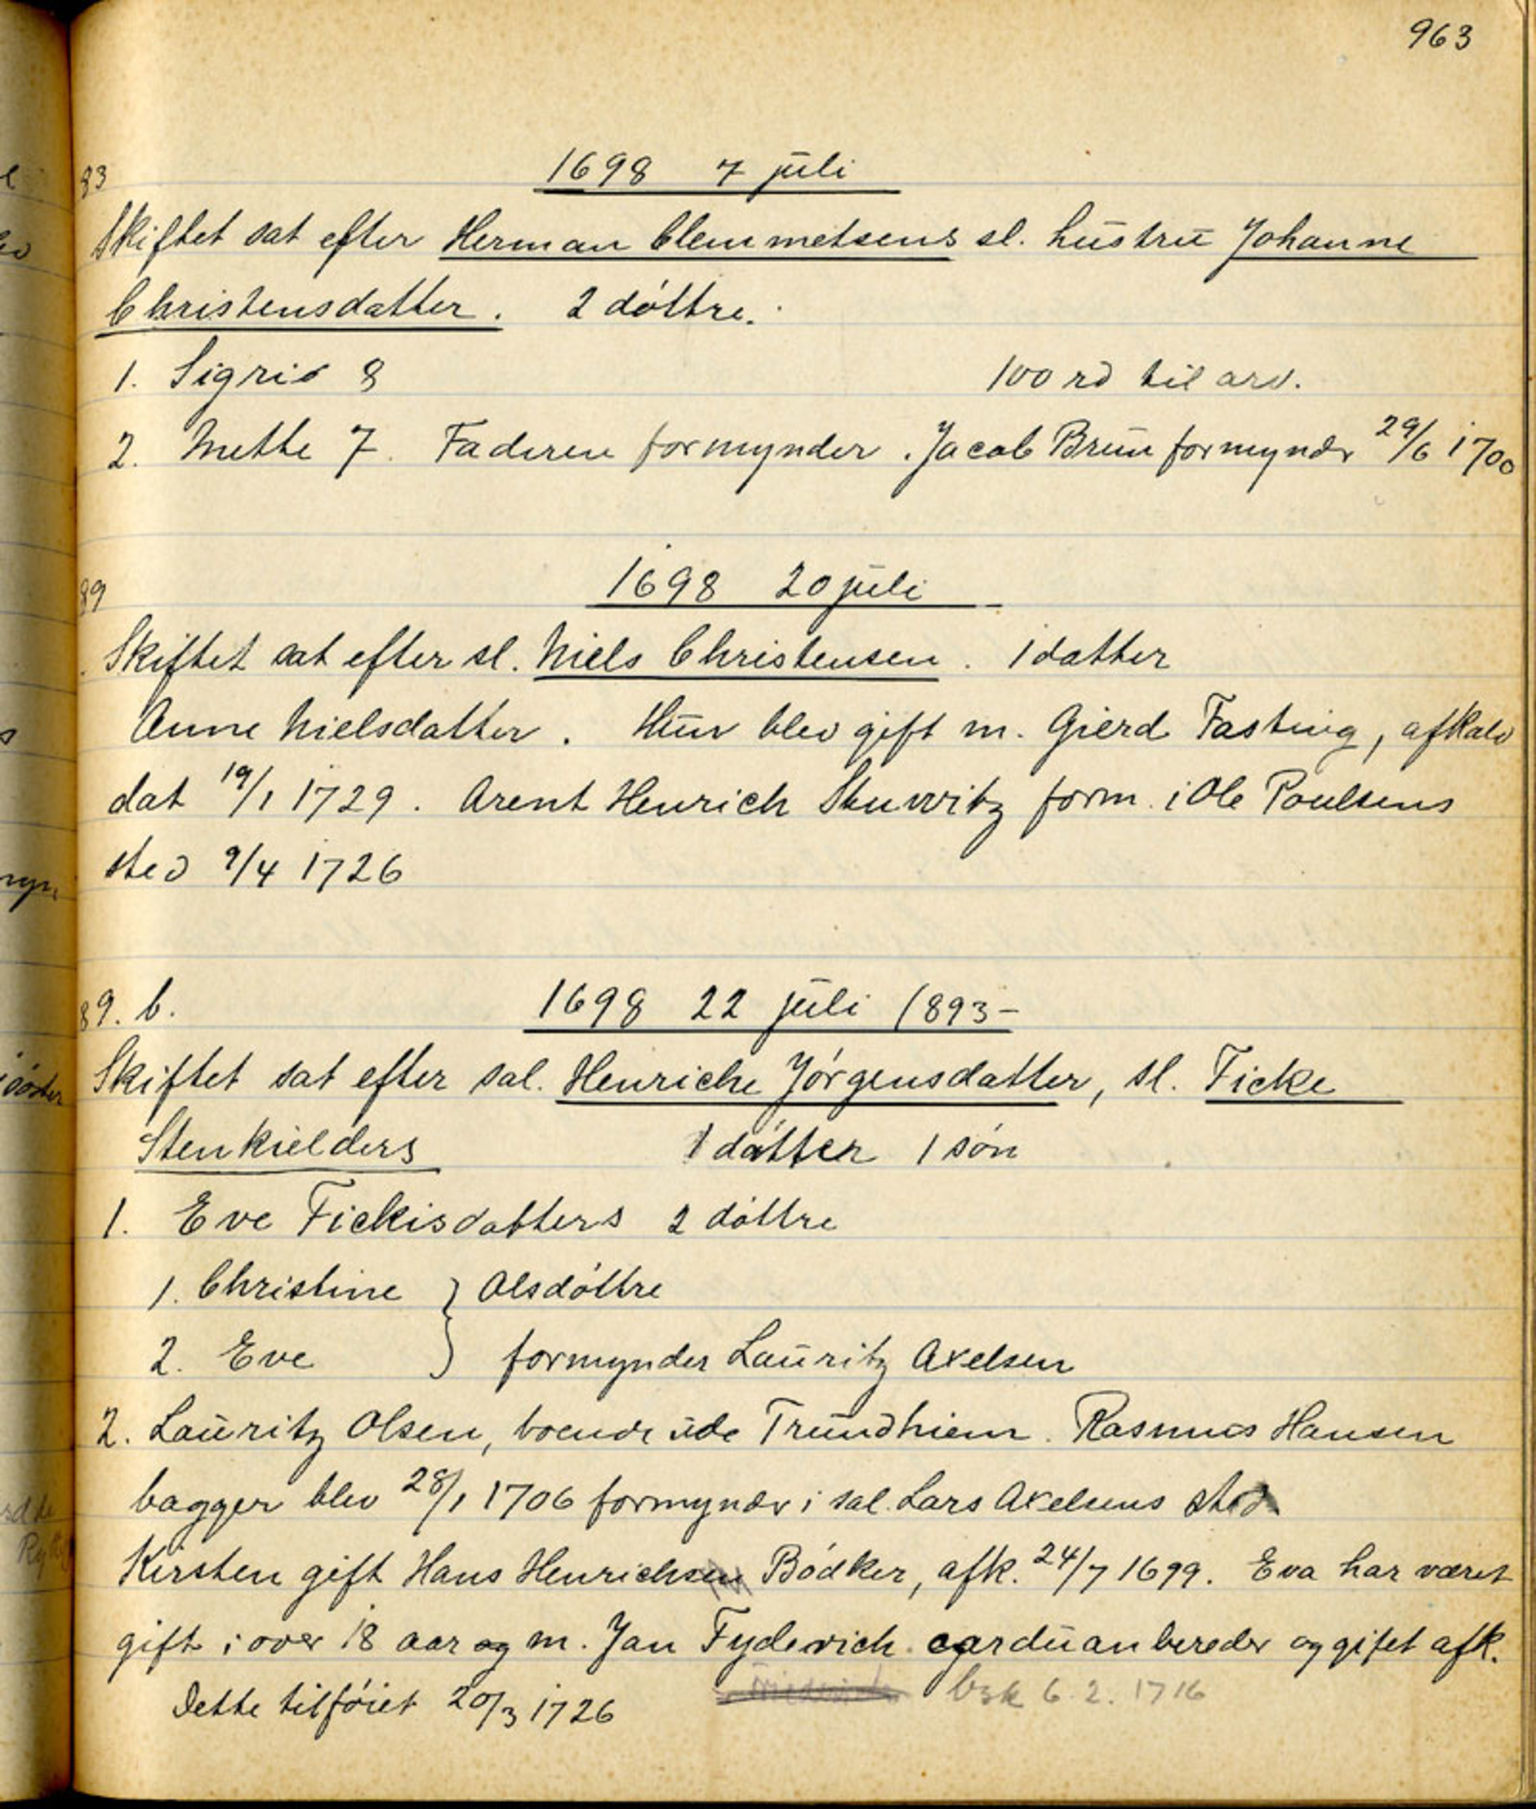 963
83 1698 7 juli
Skiftet sat efter Herman Clemmetsens sl. hustru Johanne
Christensdatter. 2 döttre.
1. Sigrid 8 100 rd til arv.
2. Mette 7. Faderen formynder. Jacob Brun formyndr 29/6 1700
89 1698 20 juli
Skiftet sat efter sl. Niels Christensen. 1 datter
Anne Nielsdatter. Hun blev gift m. Gierd Fasting, afkald
dat 19/1 1729. Arent Henrich Stuwitz form. i Ole Poulsens
sted 9/4 1726
89. b. 1698 22 juli (893-
Skiftet sat efter sal. Henriche Jörgensdatter, sl. Ficke
Stenkielders 1 datter 1 sön
1. Eve Fickisdatters 2 döttre
1. Christine } Olsdöttre
2. Eve } formynder Lauritz Axelsen
2. Lauritz Olsen, boende ude Trundhiem. Rasmus Hansen
bagger blev 28/1 1706 formyndr i sal. Lars Axelsens sted
Kirsten gift Hans Henrichsen Bödker, afk. 24/7 1699. Eva har været
gift i over 18 aar og m. Jan Fyderich carduanbereder og gifet afk.
Dette tilföiet 20/3 1726 bsk 6.2.1716